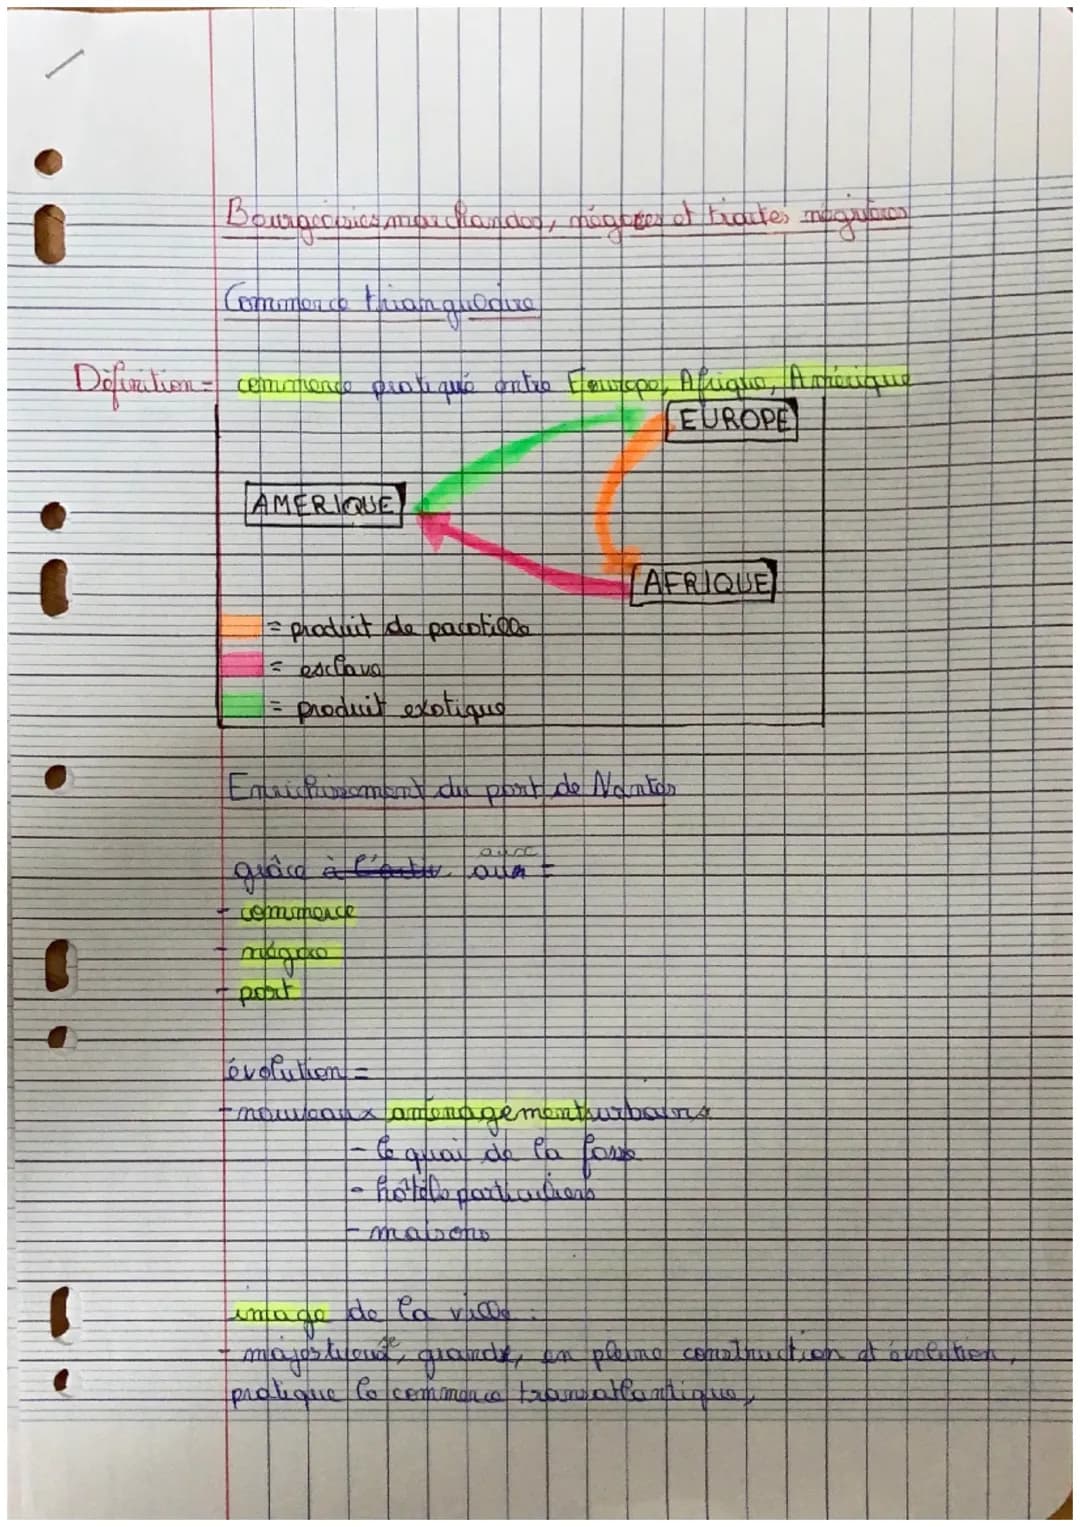 Bourgeoisies marchandes, négoces et traites négrières
Commerce triangulaire
Définition = commerce pratiqué entre Europe, Afrique, Amérique
EUROPE
AMERIQUE
AFRIQUE
= produit de pacotille
= esclave
= produit exotique
Enrichissement du port de Nantes
grâce à l'activ aux =
- commerce
- négoce
- port
évolution =
- nouveaux aménagement urbains
- le quai de la fosse
- hôtels particuliers
- maisons
image de la ville :
- majestueuse, grande, en pleine construction et évolution,
pratique le commerce transatlantique,